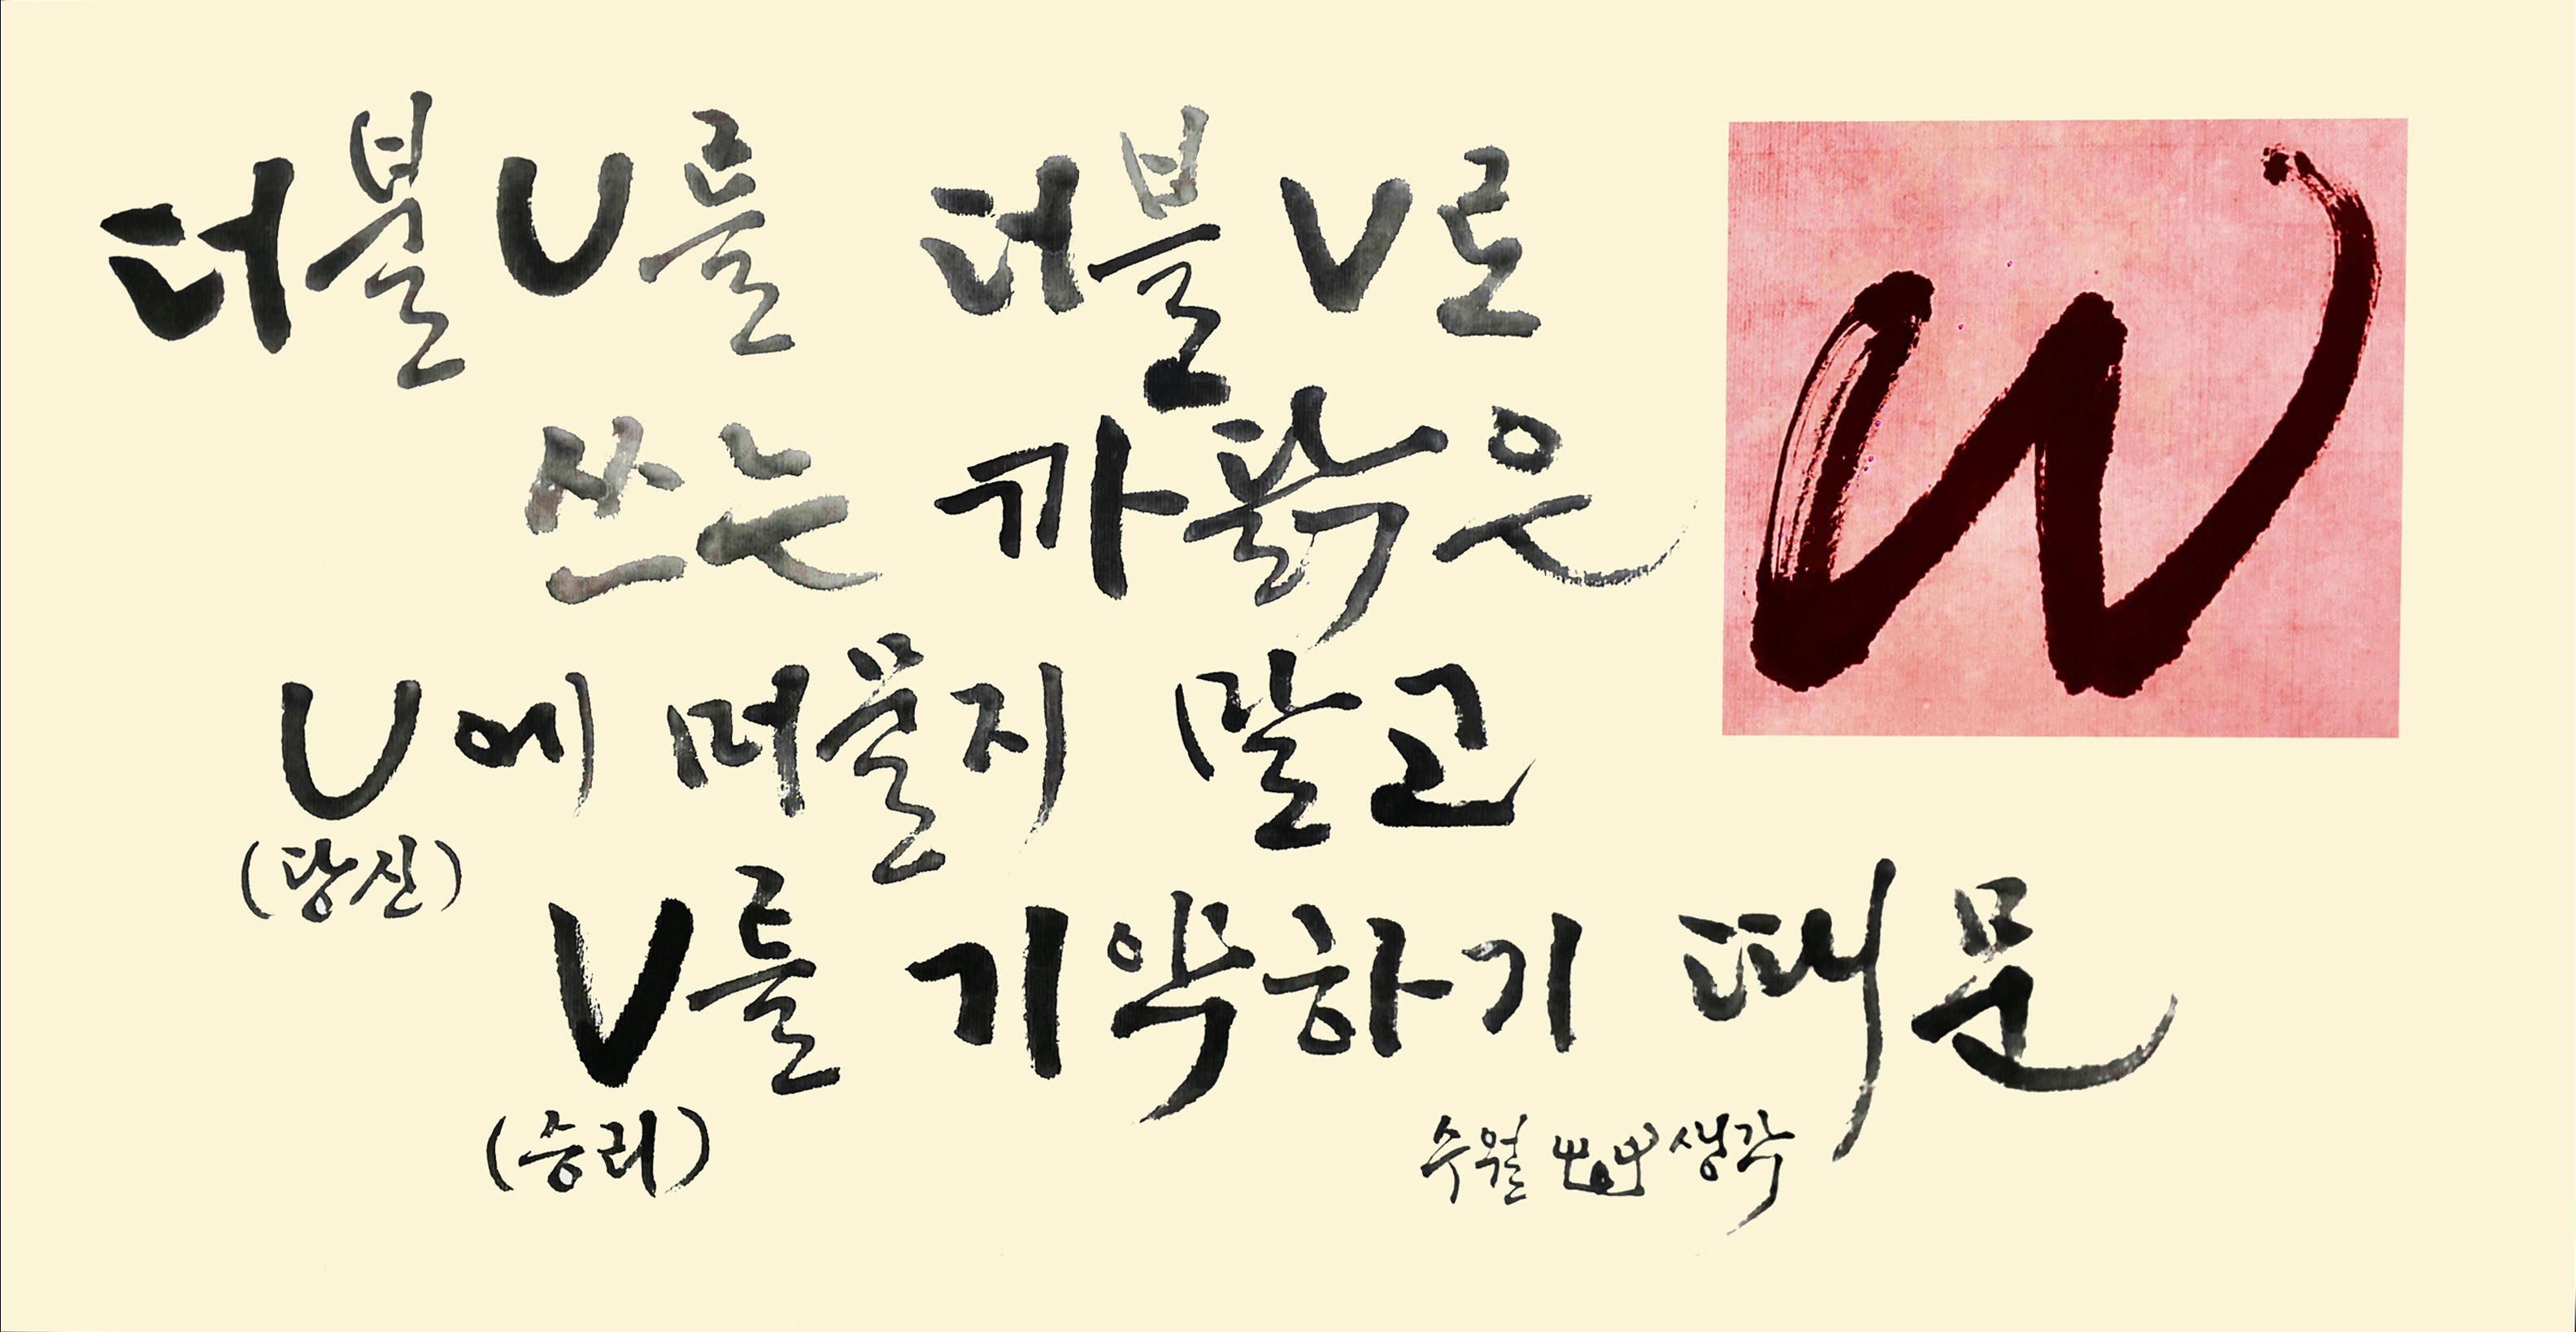 더블U를 더블V로
W
쓰는 까닭은
U에 머물지 말고
(당신)
V를 기약하기 때문
(승리)
수월 생각